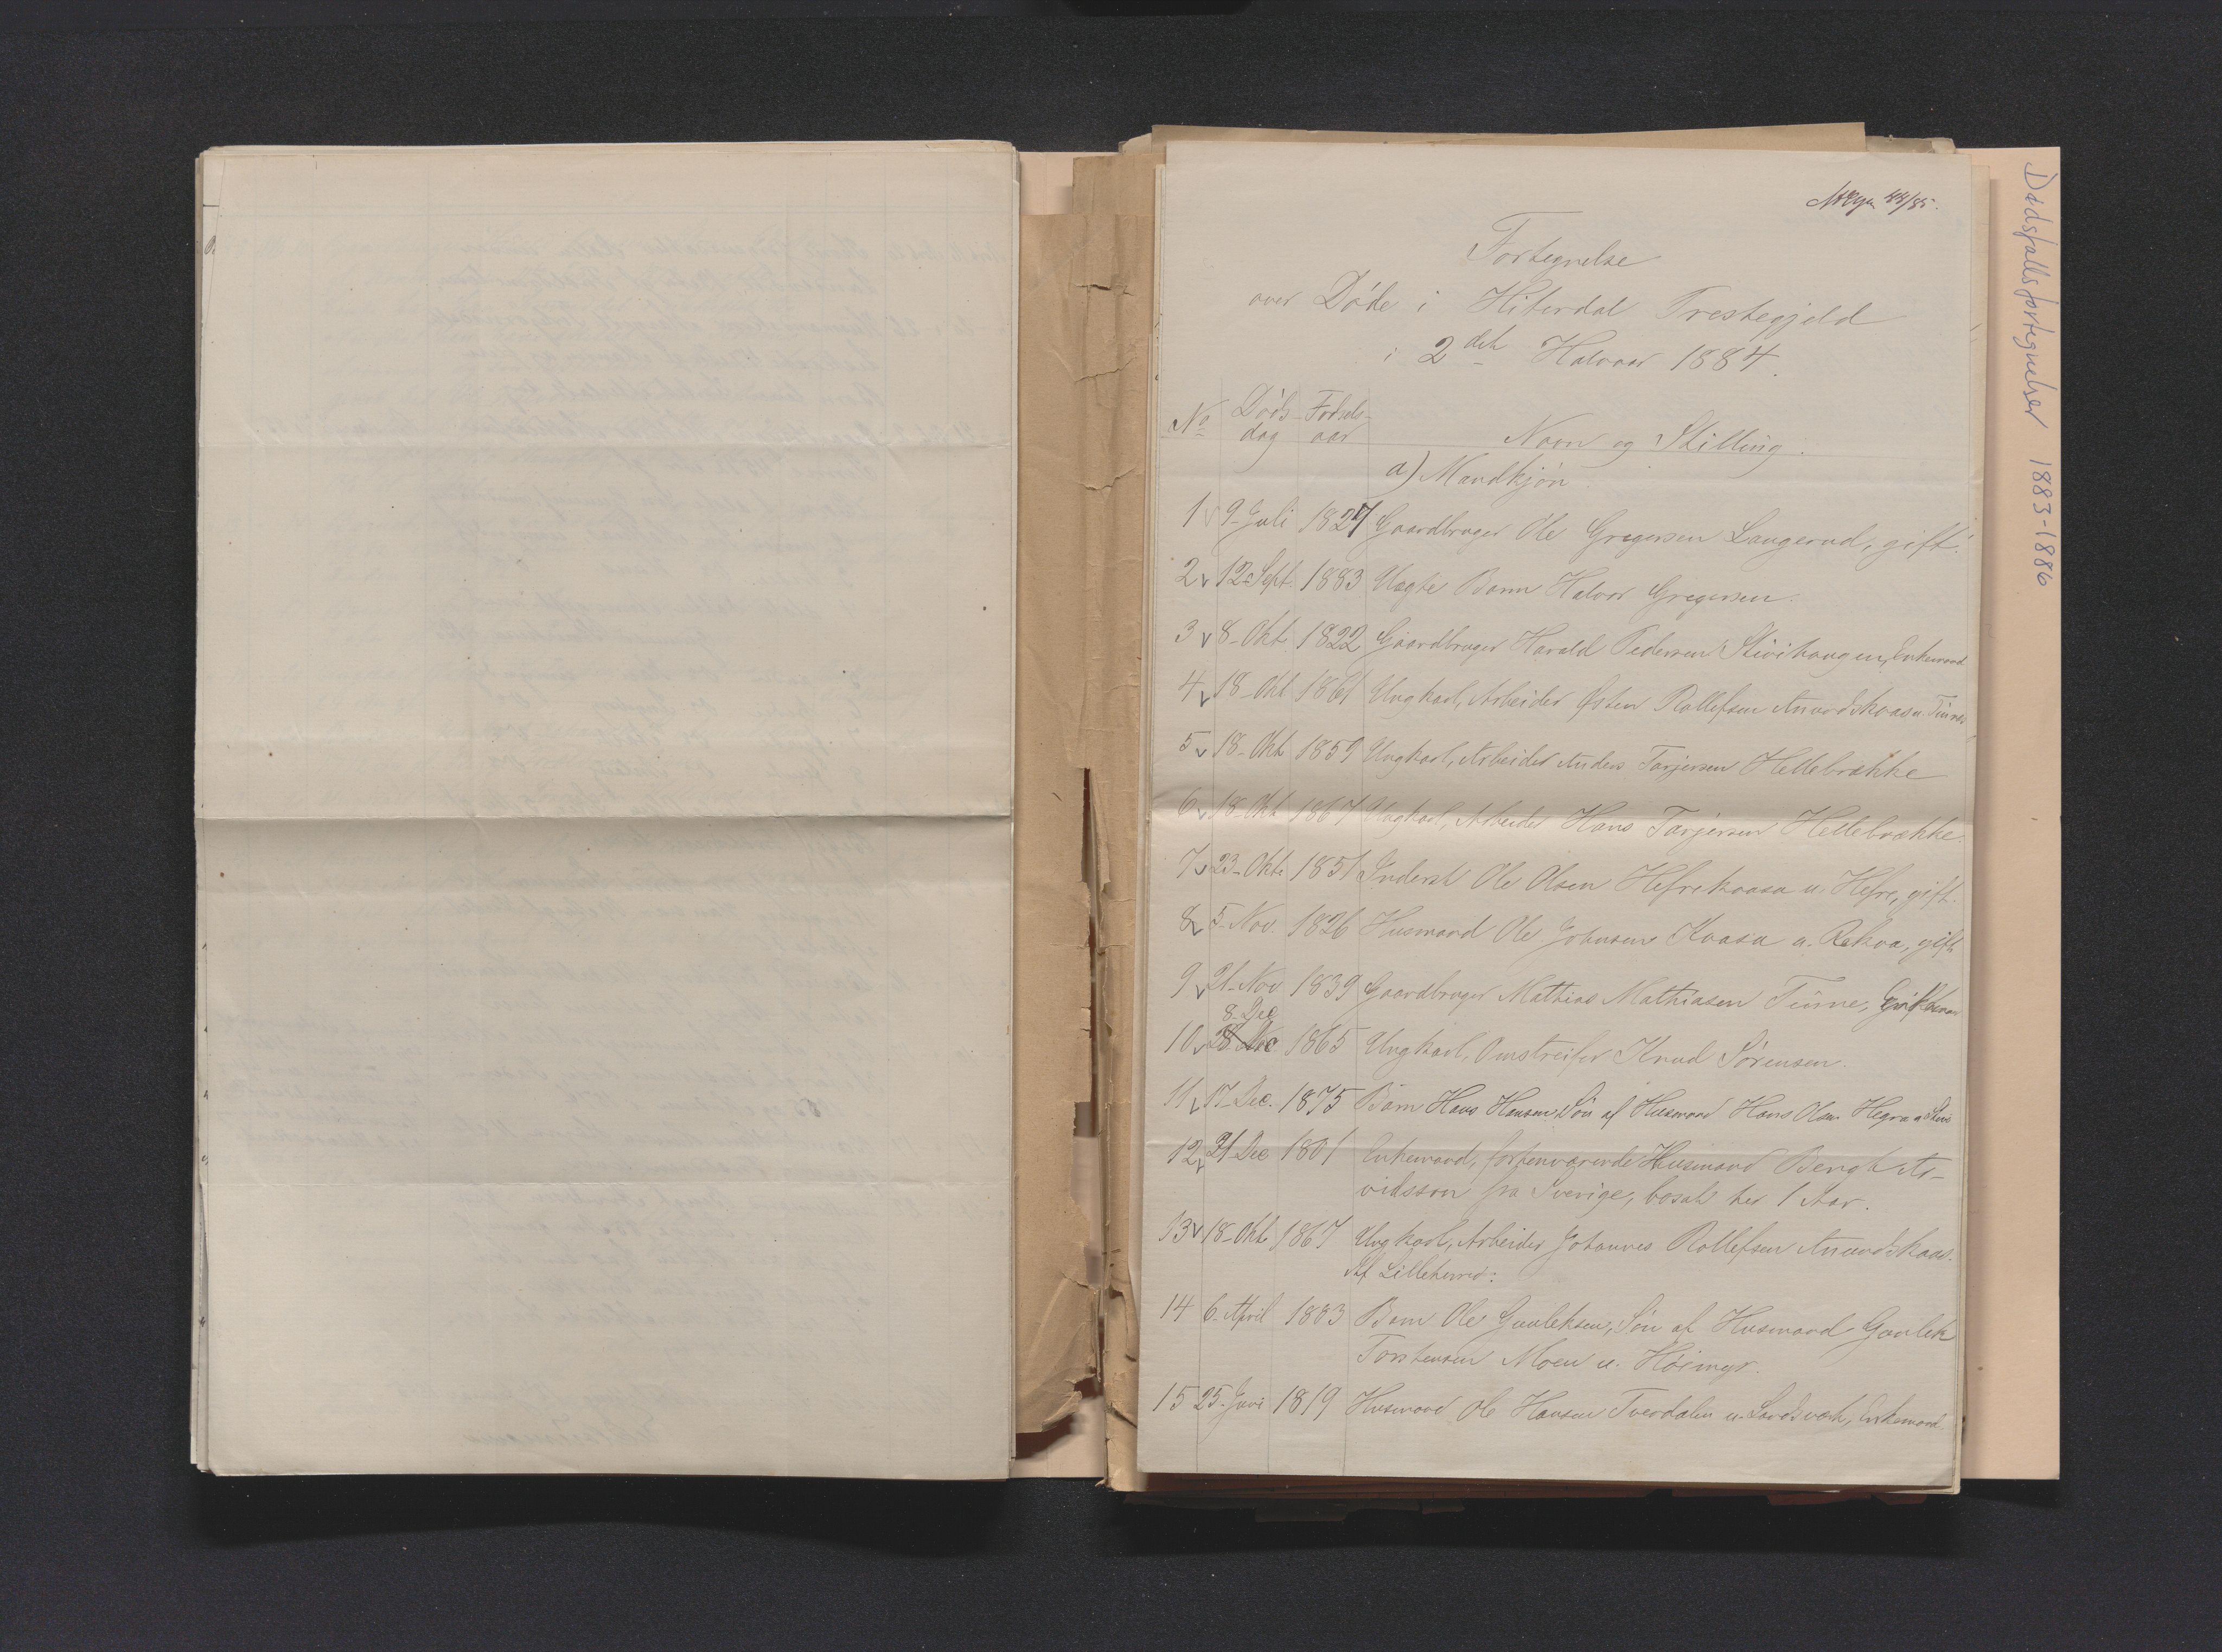 44/85.
Fortegnelse
over Døde i Hiterdal Præstegjeld
i 2det Halvaar 1884.
No Døds-dag Fødsels-aar Navn og Stilling.
a) Mandkjøn.
1 9-Juli 1827 Gaardbruger Ole Gregersen Langerud, gift.
2 12-Sept. 1883 Uægte Barn Halvor Gregersen.
3 8-Okt. 1822 Gaardbruger Harald Pedersen Enkemand
4 18-Okt 1861 Ungkarl, Arbeider Østen Rollefsen Anundskaas u. Tinne
5 18-Okt 1859 Ungkarl, Arbeider Anders Tarjersen Hellebrække
6 18-Okt 1867 Ungkarl, Arbeider Hans Tarjersen Hellebrække.
7 23-Okt 1851 Inderst Ole Olsen Hefrekaasa u. Hefre, gift.
8 5-Nov. 1826 Husmand Ole Johnsen Kaasa u. gift
9 21-Nov 1839 Gaardbruger Mathias Mathiasen Tinne,
8-Dec
10 28 1865 Ungkarl, Omstreifer Knud Sørensen.
11 17-Dec. 1875 Barn Hans Hansen, Søn af Husmand Hans Olsen
12 21 Dec 1801 Enkemand, forhenværende Husmand Bengt Ar-
vidsson fra Sverige, bosat her 1 Aar.
13 18-Okt 1867 Ungkarl, Arbeider Johannes Rollefsen Anundskaas.
Af Lilleherred:
14 6-April 1883 Barn Ole Gunleksen, Søn af Husmand Gunlek
Torstensen Moen u. Høimyr.
15 25-Juni 1819 Husmand Ole Hansen Tverdalen u. Landsværk, Enkemand
Dødsfallsfortegnelser 1883-1886